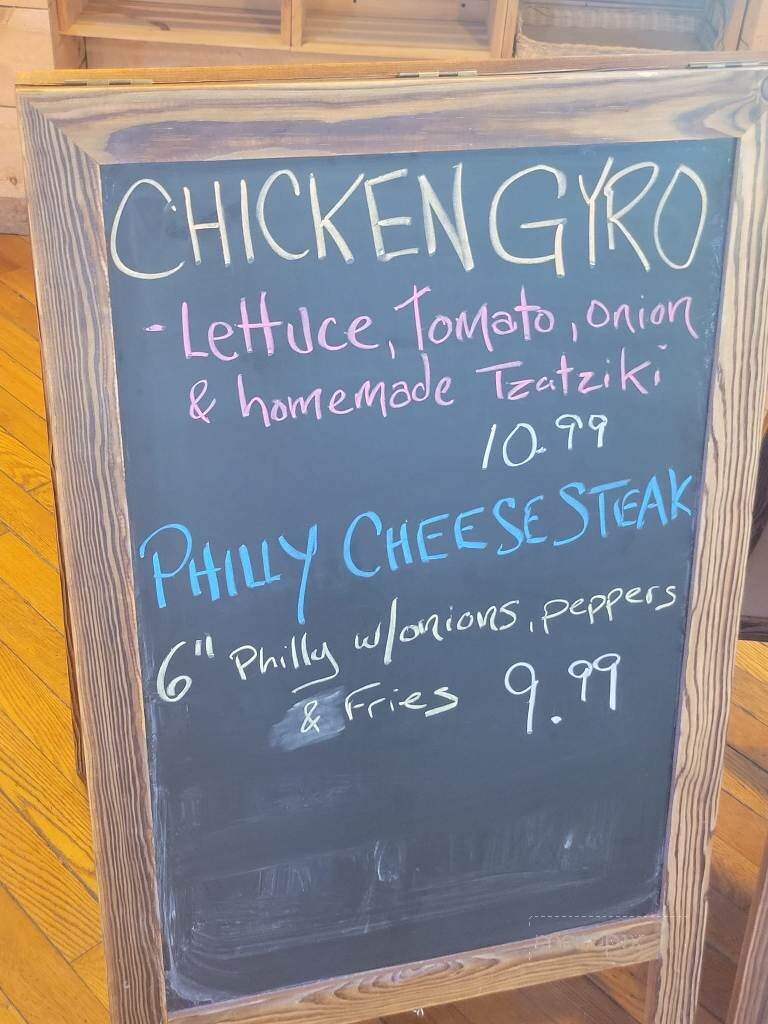 CHICKEN GYRO
- Lettuce, Tomato, onion
& homemade Tzatziki
10.99
PHILLY CHEESESTEAK
6" Philly w/onions, peppers
& Fries 9.99